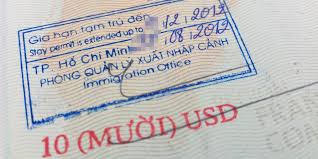 Gia hạn tạm trú đến
Stay permit is extended up to /12/2012
TP. Hồ Chí Min /08/2012
PHÒNG QUẢN LÝ XUẤT NHẬP CẢNH
Immigration Office
10 (MƯỜI) USD